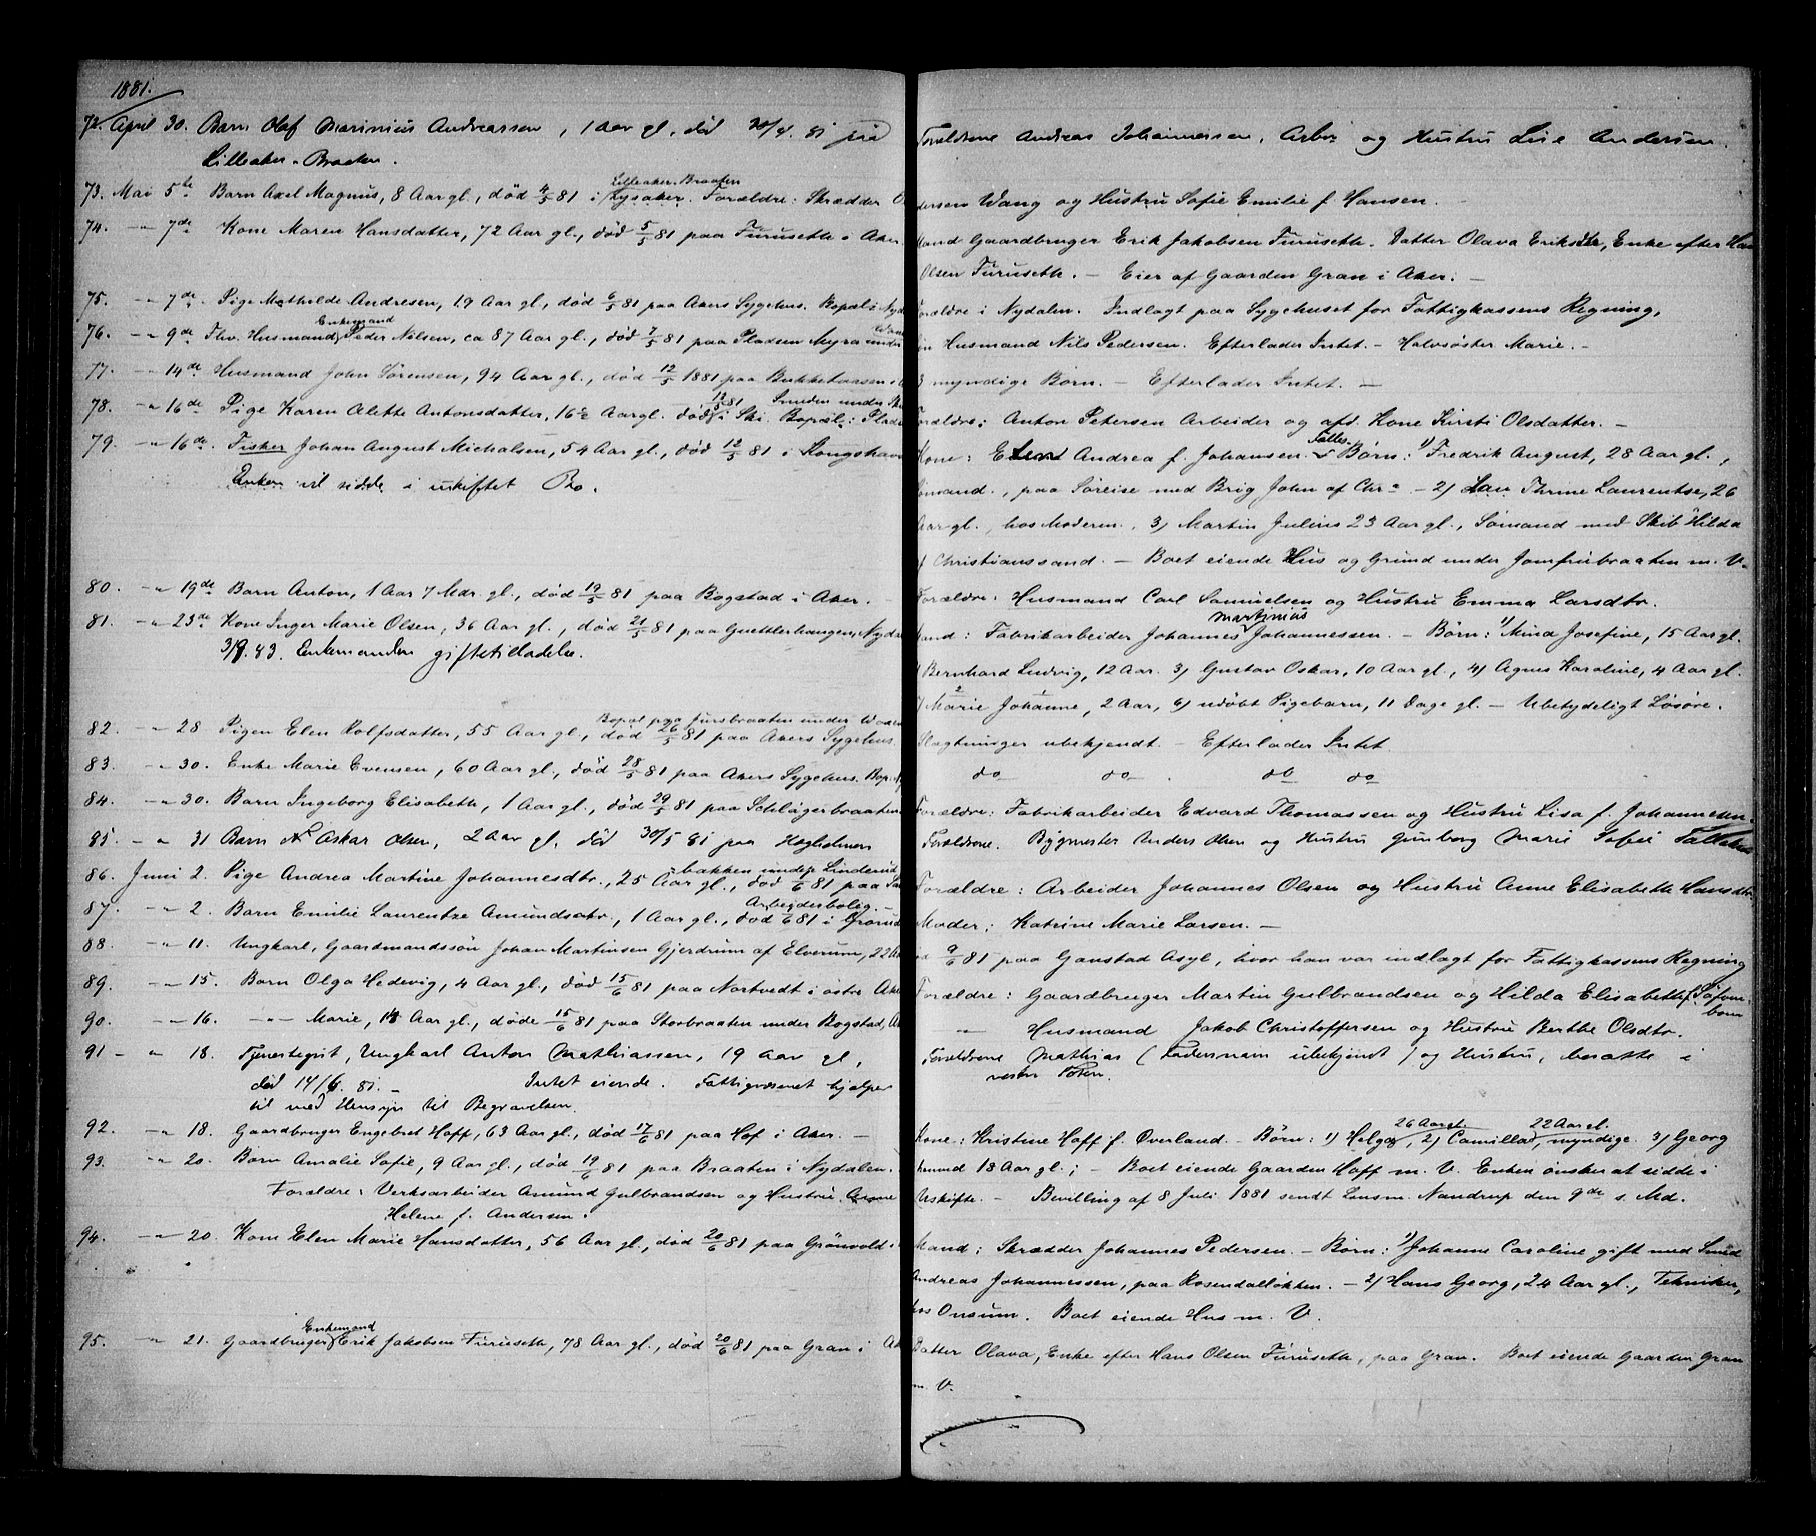 1881.
72. April 30. Barn Olaf Marinius Andreassen, 1 Aar gl. død 30/4. 81 paa
Lilleaker-Braaten.
Forældrene Andreas Johannessen, Arbr. og Hustru Lise Andersen.
Lilleaker-Braaten
73. Mai 5te Barn Axel Magnus, 8 Aar gl., død 4/5 81 i Lysaker. Forældre: Skrædder
dersen Wang og Hustru Sofie Emilie f. Hansen. -
74. -"- 7de Kone Maren Hansdatter, 72 Aar gl., død 5/5 81 paa Furuseth i Aker.
Mand Gaardbruger Erik Jakobsen Furuseth. Datter Olava Eriksdtr, Enke efter Hans
Olsen Furuseth. - Eier af Gaarden Gran i Aker. -
75. -"- 7de. Pige Mathilde Andresen, 19 Aar gl., død 6/5 81 paa Akers Sygehus. Bopæl: Nyd
Forældre i Nydalen. Indlagt paa Sygehuset for Fattigkassens Regning.
Enkemand
76. -"- 9de Fhv. Husmand Peder Nilsen, ca 87 Aar gl., død 7/5 81 paa Pladsen Myra under
Søn Husmand Nils Pedersen. Efterlader Intet. - Halvsøster Marie. -
77. -"- 14de Husmand John Sørensen, 94 Aar gl., død 12/5 1881 paa Bukkehaasen i
3 myndige Børn. - Efterlader Intet. -
12/5 81 Smeden under
78. -"- 16de Pige Karen Alette Antonsdatter, 16½ Aar gl. død i Ski. Bopæl: Plads
Forældre: Anton Petersen Arbeider og afd. Kone Kirsti Olsdatter. -
79. -"- 16de. Fisker Johan August Michalsen, 54 Aar gl., død 12/5 81 i Kongshavn
Enken vil sidde i uskiftet Bo.
Fælles-
Kone: Elen Andrea f. Johansen. Børn: 1) Fredrik August, 28 Aar gl.,
Sømand, paa Søreise med Brig John af Chra - 2) Thrine Laurentse, 26
Aar gl., hos Moderen, 3) Martin Julius 23 Aar gl., Sømand med Skib Hilda
af Christianssand. - Boet eiende Hus og Grund under Jomfrubraaten m. V.
80. -"- 19de Barn Anton, 1 Aar 7 Mdr. gl., død 19/5 81 paa Bogstad i Aker. -
Forældre: Husmand Carl Samuelsen og Hustru Emma Larsdtr.
81. -"- 23de Kone Inger Marie Olsen, 36 Aar gl., død 21/5 81 paa Guettlerhaugen, Nydal
3/9. 83. Enkemanden giftetilladelse.
Martinius
Mand: Fabrikarbeider Johannes Johannessen. - Børn: 1) Mina Josefine, 15 Aar gl.
2) Bernhard Ludvig, 12 Aar. 3) Gustav Oskar, 10 Aar gl., 4) Agnes Karoline, 4 Aar gl.
5) Marie Johanne, 2 Aar, 6) udøbt Pigebarn, 11 Dage gl. - Ubetydeligt Løsøre.
Bopæl paa Fursbraaten under
82. -"- 28 Pigen Elen Rolfsdatter, 55 Aar gl., død 26/5 81 paa Akers Sygehus.
Slægtninger ubekjendt. - Efterlader Intet.
83. -"- 30. Enke Marie Evensen, 60 Aar gl., død 28/5 81 paa Akers Sygehus. Bop.
do do do do
84. -"- 30. Barn Ingeborg Elisabeth, 1 Aar gl., død 29/5 81 paa Schlägerbraaten
Forældre: Fabrikarbeider Edvard Thomassen og Hustru Lisa f. Johannesen.
85. -"- 31 Barn Oskar Olsen, 2 Aar gl. død 30/5 81 paa Hegholmen
Forældrene. Bygmester Anders Olsen og Hustru Gunborg Marie Sofie
bakken under Linderud
86. Juni 2. Pige Andrea Martine Johannesdtr., 25 Aar gl., død /6 81 paa
Forældre: Arbeider Johannes Olsen og Hustru Anne Elisabeth Hansdtr.
Arbeiderbolig. -
87. -"- 2. Barn Emilie Laurentze Amundsdtr., 1 Aar gl., død /6 81 i Grorud
Moder: Katrine Marie Larsen. -
88. -"- 11. Ungkarl, Gaardmandssøn Johan Martinsen Gjerdrum af Elverum, 22 Aar
9/6 81 paa Gaustad Asyl, hvor han var indlagt for Fattigkassens Regning
89. -"- 15. Barn Olga Hedevig, 4 Aar gl., død 15/6 81 paa Nortvedt i østre Aker
Forældre: Gaardbruger Martin Gulbrandsen og Hilda Elisabeth f.
90. -"- 16. -"- Marie, 14 Aar gl., døde 15/6 81 paa Storbraaten under Bogstad,
-"- Husmand Jakob Christoffersen og Hustru Berthe Olsdtr.
91 - " 18. Tjenestegut, Ungkarl Anton Mathiassen, 19 Aar gl,
død 14/6. 81. - Intet eiende. Fattigvæsenet hjalper
til med Hensyn til Begravelsen.
Forældrene Mathias (Fadersnavn ubekjendt) og Hustru, bosatte i
vestre Toten.
92. -"- 18. Gaardbruger Engebret Hoff, 63 Aar gl., død 17/6 81 paa Hof i Aker. -
26 Aar gl. 22 Aar gl.
Kone: Kristine Hoff f. Øverland. - Børn: 1) Helga, 2) Camilla, myndige. 3) Georg
Amund 18 Aar gl.; - Boet eiende Gaarden Hoff m. V. Enken ønsker at sidde i
Uskifte. - Bevilling af 8 Juli 1881 sendt Lensm. Nandrup den 9de s. Md.
93. -"- 20. Barn Amalie Sofie, 9 Aar gl., død 19/6 81 paa Braaten i Nydalen.
Forældre: Verksarbeider Amund Gulbrandsen og Hustru Anne
Helene f. Andersen.
94. -"- 20. Kone Elen Marie Hansdatter, 56 Aar gl., død 20/6 81 paa Grønvold i
Mand: Skrædder Johannes Pedersen. - Børn: 1) Johanne Caroline gift med Smed
Andreas Johannessen, paa Rosendalløkken. - 2) Hans Georg, 24 Aar gl., Tekniker,
hos Onsum. Boet eiende Hus m. V.
Enkemand
95. -"- 21. Gaardbruger Erik Jakobsen Furuseth, 78 Aar gl., død 20/6 81 paa Gran i Ak
Datter Olava, Enke efter Hans Olsen Furuseth, paa Gran. Boet eiende Gaarden Gran
m. V.